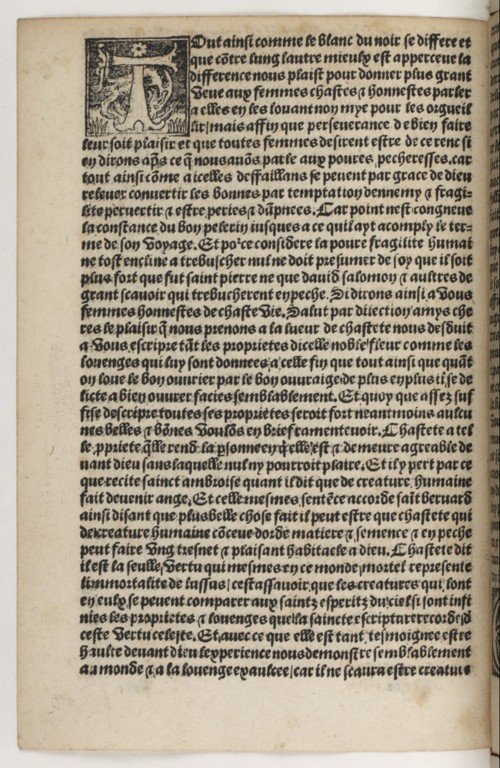 TOut ainsi comme le blanc du noir se differe et
que cõtre lung lautre mieulx est apperceue la
difference nous plaist pour donner plus grant
veue aux femmes chastes ⁊ honnestes parler
a elles en les louant non mye pour les orgueil
lir/mais affin que perseuerance de bien faire
leur soit plaisir et que toutes femmes desirent estre de ce renc si
en dirons apꝭ ce q̃ nous auõs parle aux poures pecheresses. car
tout ainsi cõme a icelles deffaillans se peuent par grace de dieu
releuer conuertir les bonnes par temptation dennemy ⁊ fragi-
lite peruertir ⁊ estre peries ⁊ dãpnees. Car point nest congneue
la constance du bon pelerin iusques a ce quil ayt acomply le ter-
me de son voyage. Et po² ce considere la poure fragilite humai
ne tost encline a trebuscher nul ne doit presumer de soy que il soit
plus fort que fut saint pierre ne que dauid salomon ⁊ aultres de
grant scauoir qui trebucherent en peche. Si dirons ainsi a vous
femmes honnestes de chaste vie. Salut par dilection amys che
res le plaisir q̃ nous prenons a la lueur de chastete nous desduit
a vous escripre tãt les proprietes dicelle noble fleur comme les
louenges qui luy sont donnees/a celle fin que tout ainsi que quãt
on loue le bon ouurier par le bon ouuraige de plus en plus il se de
licte a bien ouurer facies semblablement. Et quoy que assez suf
fise descripre toutes ses proprietes seroit fort neantmoins aulcu
nes belles ⁊ bõnes voulõs en brief ramenteuoir. Chastete a tel
le ꝓpriete q̃lle rend la ꝑsonne en q̃ elle est ⁊ demeure agreable de
uant dieu sans laquelle nul ny pourroit plaire. Et il y pert par ce
que recite sainct ambroise quant il dit que de creature humaine
fait deuenir ange. Et celle mesmes sentẽce accorde saĩt bernard
ainsi disant que plus belle chose fait il peut estre que chastete qui
de creature humaine cõceue dorde matiere ⁊ semence ⁊ en peche
peut faire vng tresnet ⁊ plaisant habitacle a dieu. Chastete dit
il est la seulle vertu qui mesmes en ce monde mortel represente
limmortalite de lassus/cestassauoir que les creatures qui lont
en eulx se peuent comparer aux saintz esperitz du ciel si sont infi
nies les proprietes ⁊ louenges que la saincte escripture recorde d
ceste vertu celeste. Et auec ce que elle est tant tesmoignee estre
haulte deuant dieu lexperience nous demonstre semblablement
au monde ⁊ a la louenge exaulcee/car il ne scaura estre creature